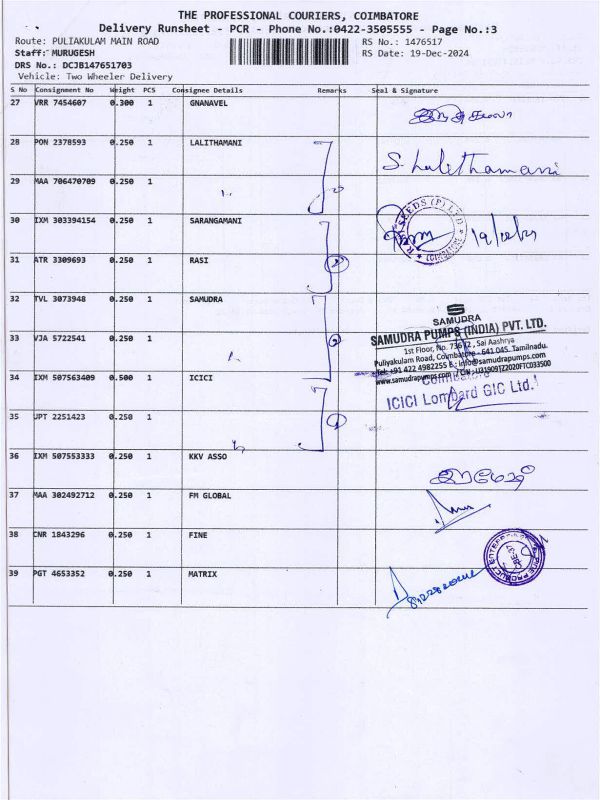 THE PROFESSIONAL COURIERS, COIMBATORE
Delivery Runsheet - PCR - Phone No.:0422-3505555 - Page No.:3
Route: PULIAKULAM MAIN ROAD RS No.: 1476517
Staff: MURUGESH RS Date: 19-Dec-2024
DRS No.: DCJB147651703
Vehicle: Two Wheeler Delivery
S No Consignment No Weight PCS Consignee Details Remarks Seal & Signature
27 VRR 7454607 0.300 1 GNANAVEL
28 PON 2378593 0.250 1 LALITHAMANI
S. Lalithamani
29 MAA 706470709 0.250 1
30 IXM 303394154 0.250 1 SARANGAMANI
19/12/24
31 ATR 3309693 0.250 1 RASI
32 TVL 3073948 0.250 1 SAMUDRA
SAMUDRA
SAMUDRA PUMPS (INDIA) PVT. LTD.
33 VJA 5722541 0.250 1
1st Floor, No. Sai Aashrya
Puliyakulam Road, Coimbatore - 641 045. Tamilnadu.
Tel: +91 422 4982255 E: info@samudrapumps.com
www.samudrapumps.com
34 IXM 507563409 0.500 1 ICICI
Coimbatore
ICICI Lombard GIC Ltd.
35 JPT 2251423 0.250 1
36 IXM 507553333 0.250 1 KKV ASSO
37 MAA 302492712 0.250 1 FM GLOBAL
38 CNR 1843296 0.250 1 FINE
39 PGT 4653352 0.250 1 MATRIX